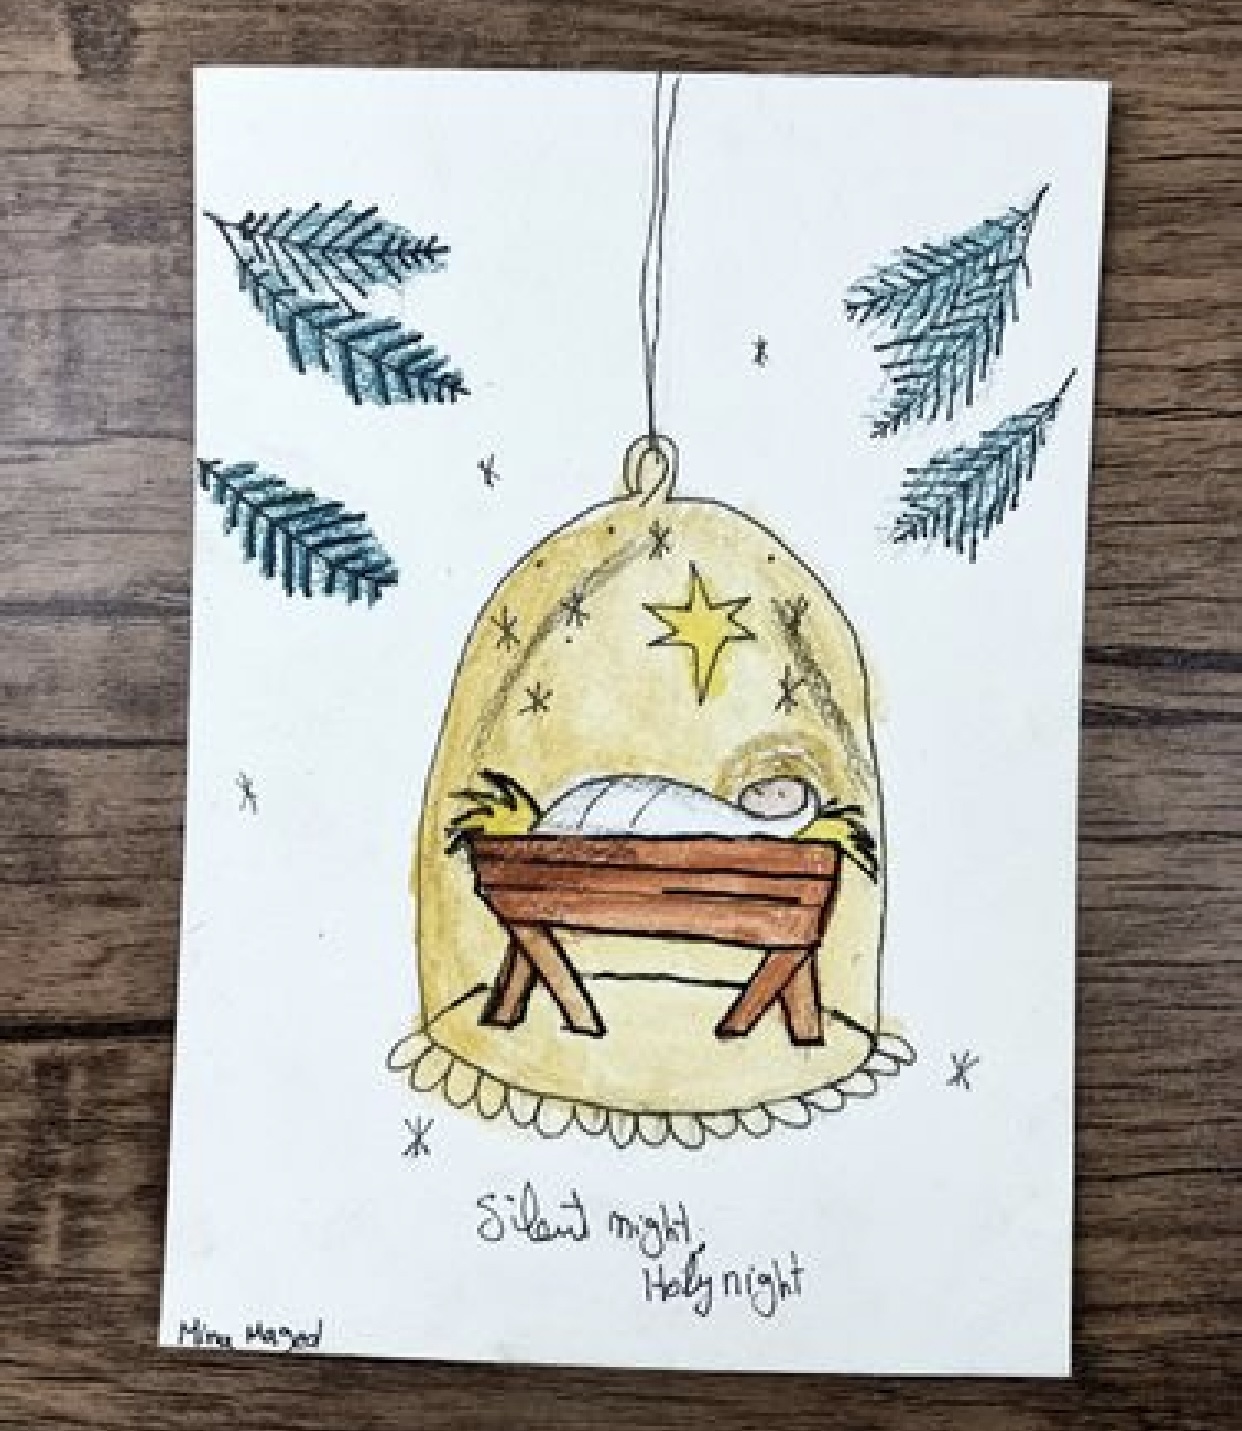 Silent night,
Holy night
Mina Maged